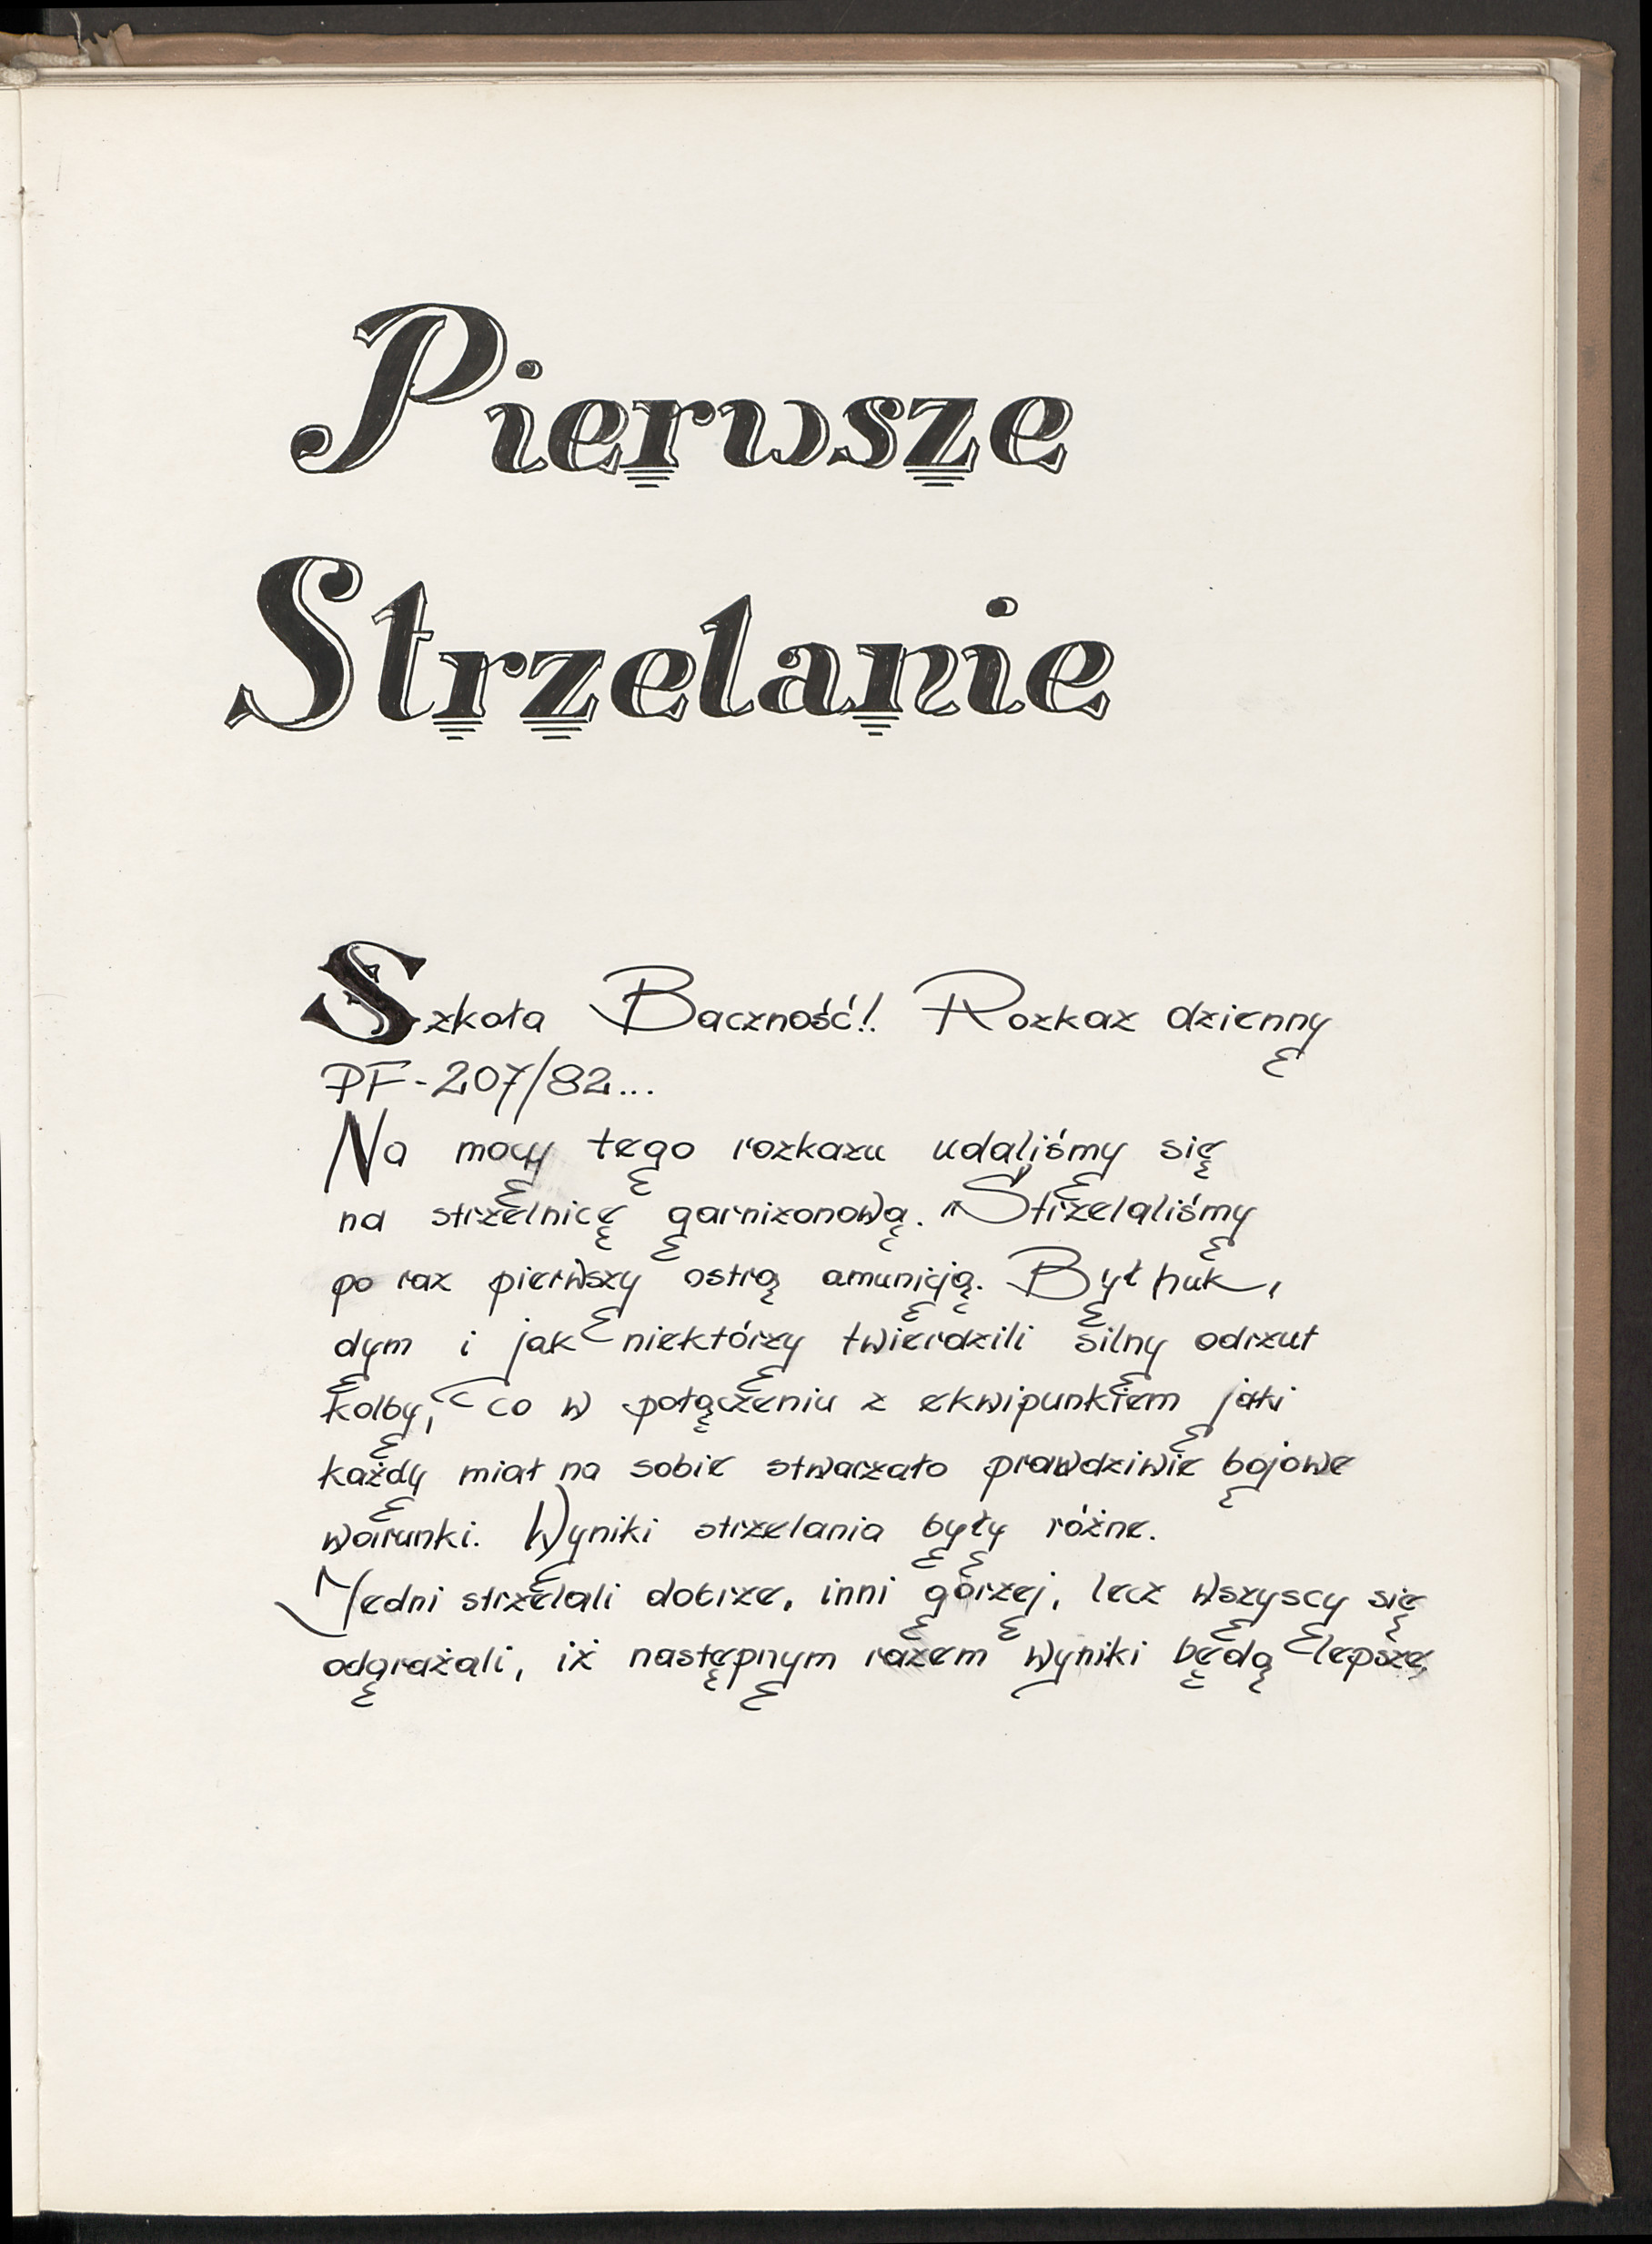 Pierwsze
Strzelanie
Szkoła Baczność!! Rozkaz dzienny
PF-207/82...
Na mocy tego rozkazu udaliśmy się
na strzelnicę garnizonową. Strzelaliśmy
po raz pierwszy ostrą amunicją. Był huk,
dym i jak niektórzy twierdzili silny odrzut
kolby, co w połączeniu z ekwipunkiem jaki
każdy miał na sobie stwarzało prawdziwie bojowe
warunki. Wyniki strzelania były różne.
Jedni strzelali dobrze, inni gorzej, lecz wszyscy się
odgrażali, iż następnym razem wyniki będą lepsze.